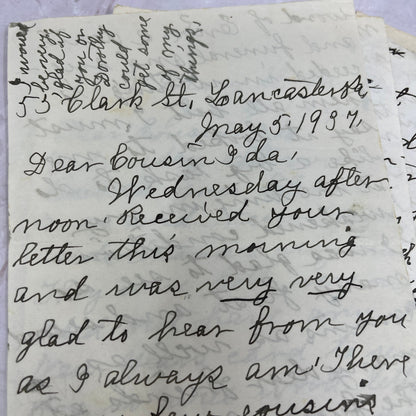 I would
be very
glad if
you or
Dorothy
could
get some
of my
things.
55 Clark St. Lancaster
May 5, 1937,
Dear Cousin Ida,
Wednesday after
noon. Received your
letter this morning
and was very very
glad to hear from you
as I always am. There
few cousins